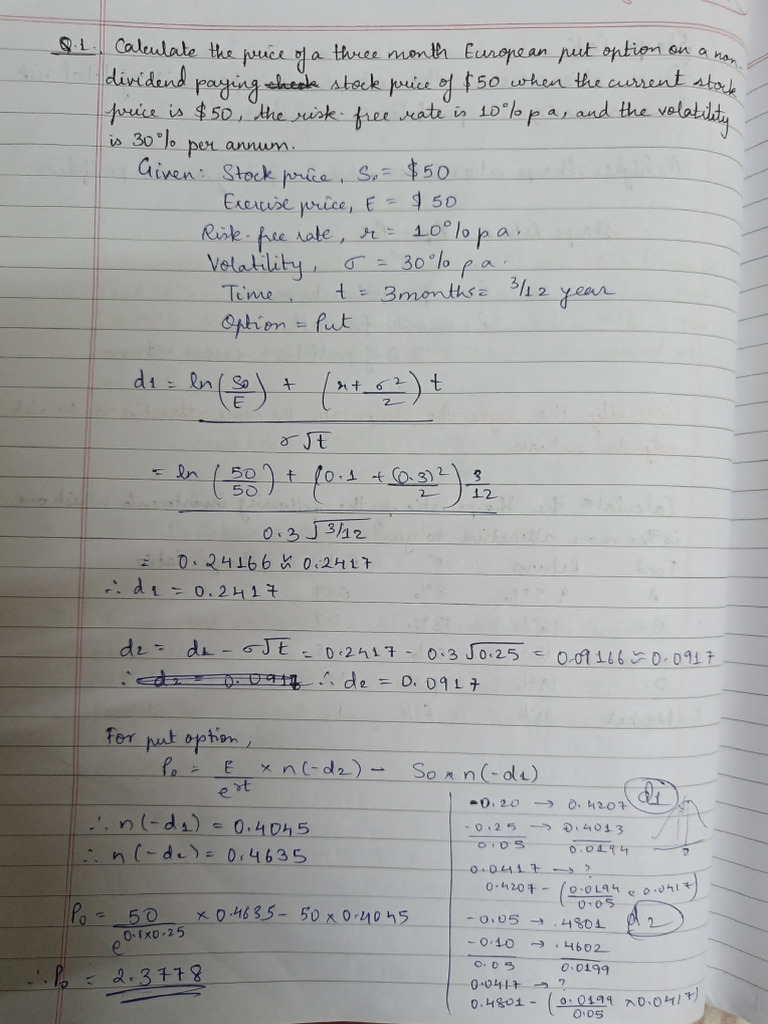 Q.1. Calculate the price of a three month European put option on a non
dividend paying stock price of $50 when the current stock
price is $50, the risk-free rate is 10% p a, and the volatility
is 30% per annum.
Given: Stock price, S₀ = $50
Exercise price, E = $50
Risk-free rate, r = 10% p a.
Volatility, σ = 30% p a.
Time, t = 3months = 3/12 year
Option = Put
d1 = ln(S0/E) + (r + σ²/2) t
σ√t
= ln (50/50) + (0.1 + (0.3)²/2) 3/12
0.3 √3/12
= 0.24166 ≈ 0.2417
∴ d1 = 0.2417
d2 = d1 - σ√t = 0.2417 - 0.3√0.25 = 0.09166 ≈ 0.0917
∴ d2 = 0.0917 ∴ d2 = 0.0917
For put option,
P0 = E/e^rt × n(-d2) - S0 × n(-d1)
∴ n(-d1) = 0.4045
∴ n(-d2) = 0.4635
P0 = 50/e^0.1×0.25 × 0.4635 - 50 × 0.4045
∴ P0 = 2.3778
-0.20 → 0.4207 d1
-0.25 → 0.4013
0.05 0.0194
0
0.0417 → ?
0.4207 - (0.0194/0.05 × 0.0417)
-0.05 → .4801 d2
-0.10 → .4602
0.05 0.0199
0.0417 → ?
0.4801 - (0.0199/0.05 × 0.0417)